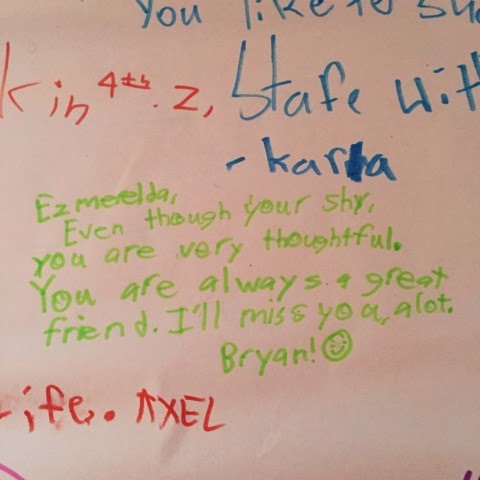 You like to
k in 4th. 2, Stafe wit
- karla
Ezmerelda,
Even though your shy,
you are very thoughtful.
You are always a great
friend. I'll miss you, alot.
Bryan!
Life. AXEL